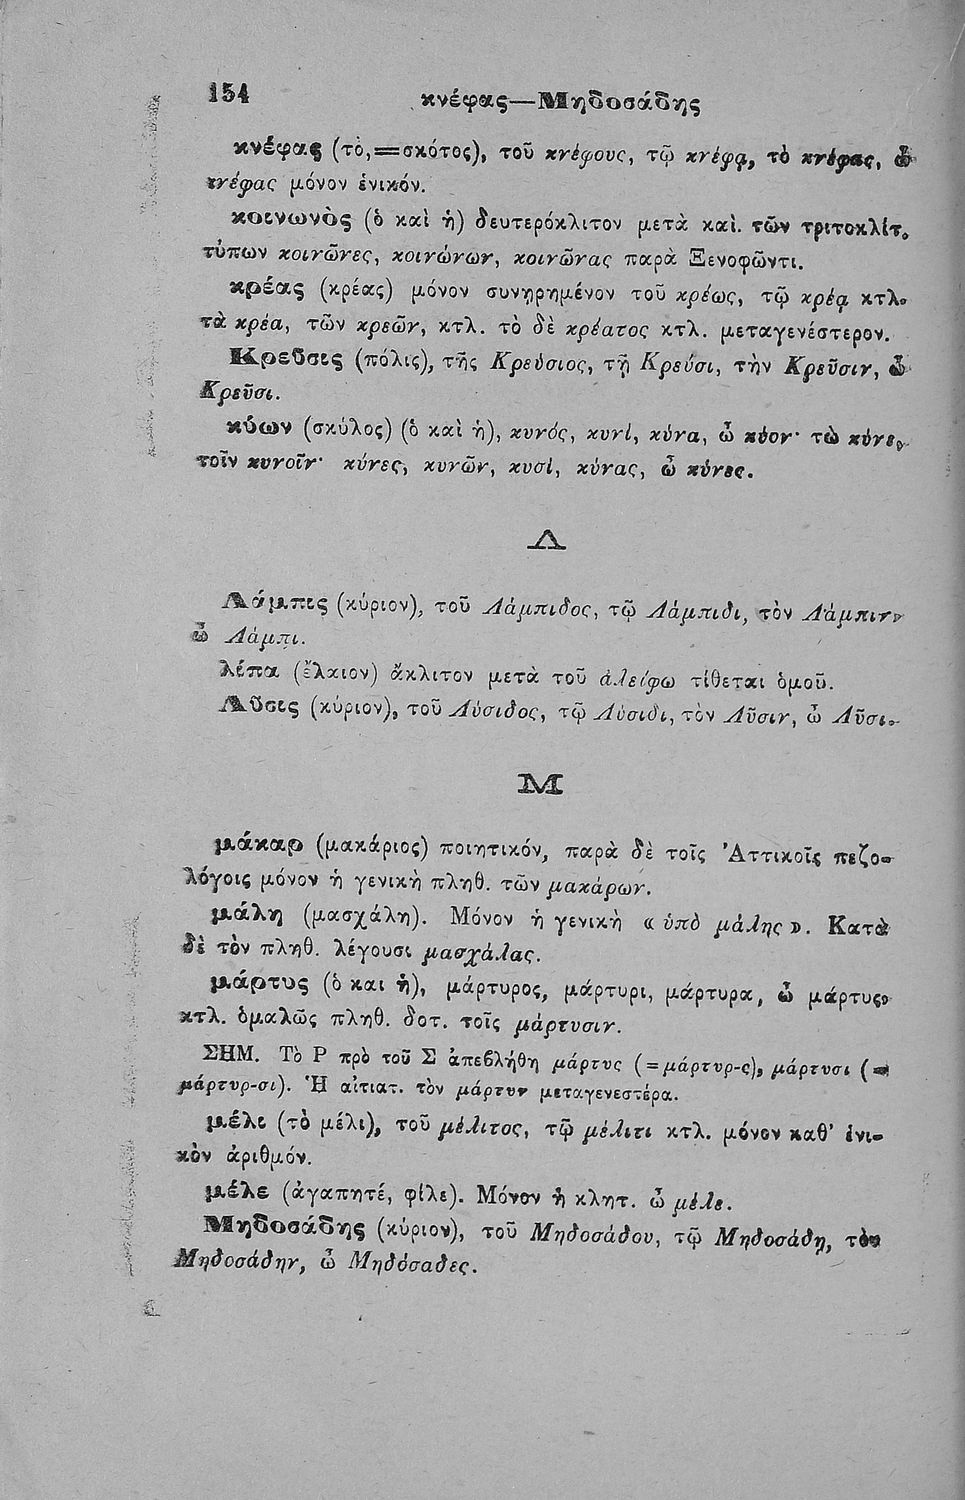 154
κνέφας—Μηδοσάδης
κνέφας (τὸ,=σκότος), τοῦ κνέφους, τῷ κνέφᾳ, τὸ κνέφας, ὦ
κνέφας μόνον ἑνικόν.
κοινωνὸς (ὁ καὶ ἡ) δευτερόκλιτον μετὰ καὶ. τῶν τριτοκλίτ.
τύπων κοινῶνες, κοινώνων, κοινῶνας παρὰ Ξενοφῶντι.
κρέας (κρέας) μόνον συνῃρημένον τοῦ κρέως, τῷ κρέᾳ κτλ.
τὰ κρέα, τῶν κρεῶν, κτλ. τὸ δὲ κρέατος κτλ. μεταγενέστερον.
Κρεῦσις (πόλις), τῆς Κρεύσιος, τῇ Κρεύσι, τὴν Κρεῦσιν, ὦ
Κρεῦσι.
κύων (σκύλος) (ὁ καὶ ἡ), κυνός, κυνί, κύνα, ὦ κύον· τὼ κύνε,
τοῖν κυνοῖν· κύνες, κυνῶν, κυσί, κύνας, ὦ κύνες.
Λ
Λάμπις (κύριον), τοῦ Λάμπιδος, τῷ Λάμπιδι, τὸν Λάμπιν,
ὦ Λάμπι.
λίπα (ἔλαιον) ἄκλιτον μετὰ τοῦ ἀλείφω τίθεται ὁμοῦ.
Λῦσις (κύριον), τοῦ Λύσιδος, τῷ Λύσιδι, τὸν Λῦσιν, ὦ Λῦσι.
Μ
μάκαρ (μακάριος) ποιητικόν, παρὰ δὲ τοῖς Ἀττικοῖς πεζο-
λόγοις μόνον ἡ γενικὴ πληθ. τῶν μακάρων.
μάλη (μασχάλη). Μόνον ἡ γενικὴ « ὑπὸ μάλης ». Κατὰ
δὲ τὸν πληθ. λέγουσι μασχάλας.
μάρτυς (ὁ και ἡ), μάρτυρος, μάρτυρι, μάρτυρα, ὦ μάρτυς,
κτλ. ὁμαλῶς πληθ. δοτ. τοῖς μάρτυσιν.
ΣΗΜ. Τὸ Ρ πρὸ τοῦ Σ ἀπεβλήθη μάρτυς (=μάρτυρ-ς), μάρτυσι (=
μάρτυρ-σι). Ἡ αἰτιατ. τὸν μάρτυν μεταγενεστέρα.
μέλι (τὸ μέλι), τοῦ μέλιτος, τῷ μέλιτι κτλ. μόνον καθ' ἑνι-
κὸν ἀριθμόν.
μέλε (ἀγαπητέ, φίλε). Μόνον ἡ κλητ. ὦ μέλε.
Μηδοσάδης (κύριον), τοῦ Μηδοσάδου, τῷ Μηδοσάδῃ, τὸν
Μηδοσάδην, ὦ Μηδόσαδες.